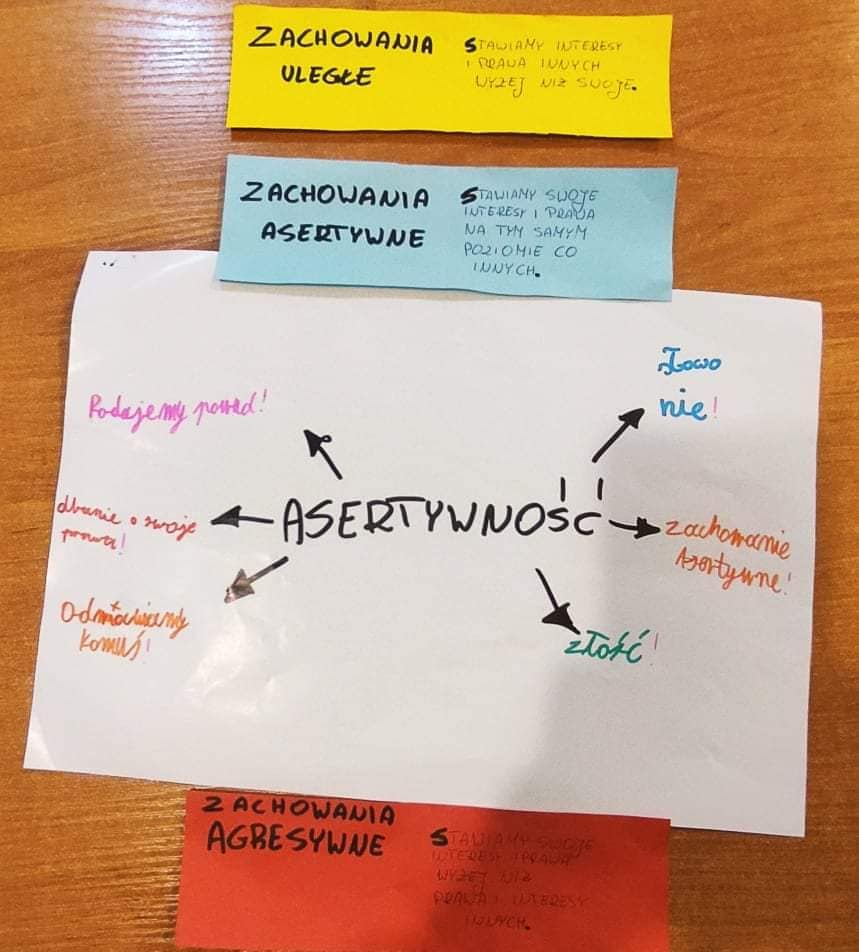 ZACHOWANIA
ULEGŁE
STAWIAMY INTERESY
I PRAWA INNYCH
WYZEJ NIZ SWOJE.
ZACHOWANIA
ASERTYWNE
STAWIAMY SWOJE
INTERESY I PRAWA
NA TYM SAMYM
POZIOMIE CO
INNYCH.
Słowo
nie!
Podajemy powód!
ASERTYWNOŚĆ
dbanie o swoje
prawa!
zachowanie
Asertywne!
Odmawiamy
komuś!
złość!
ZACHOWANIA
AGRESYWNE
STAWIAMY SWOJE
INTERESY I PRAWA
WYZEJ NIZ
PRAWA I INTERESY
INNYCH.